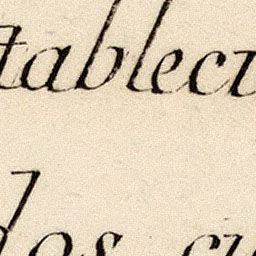 tablecu
los cu